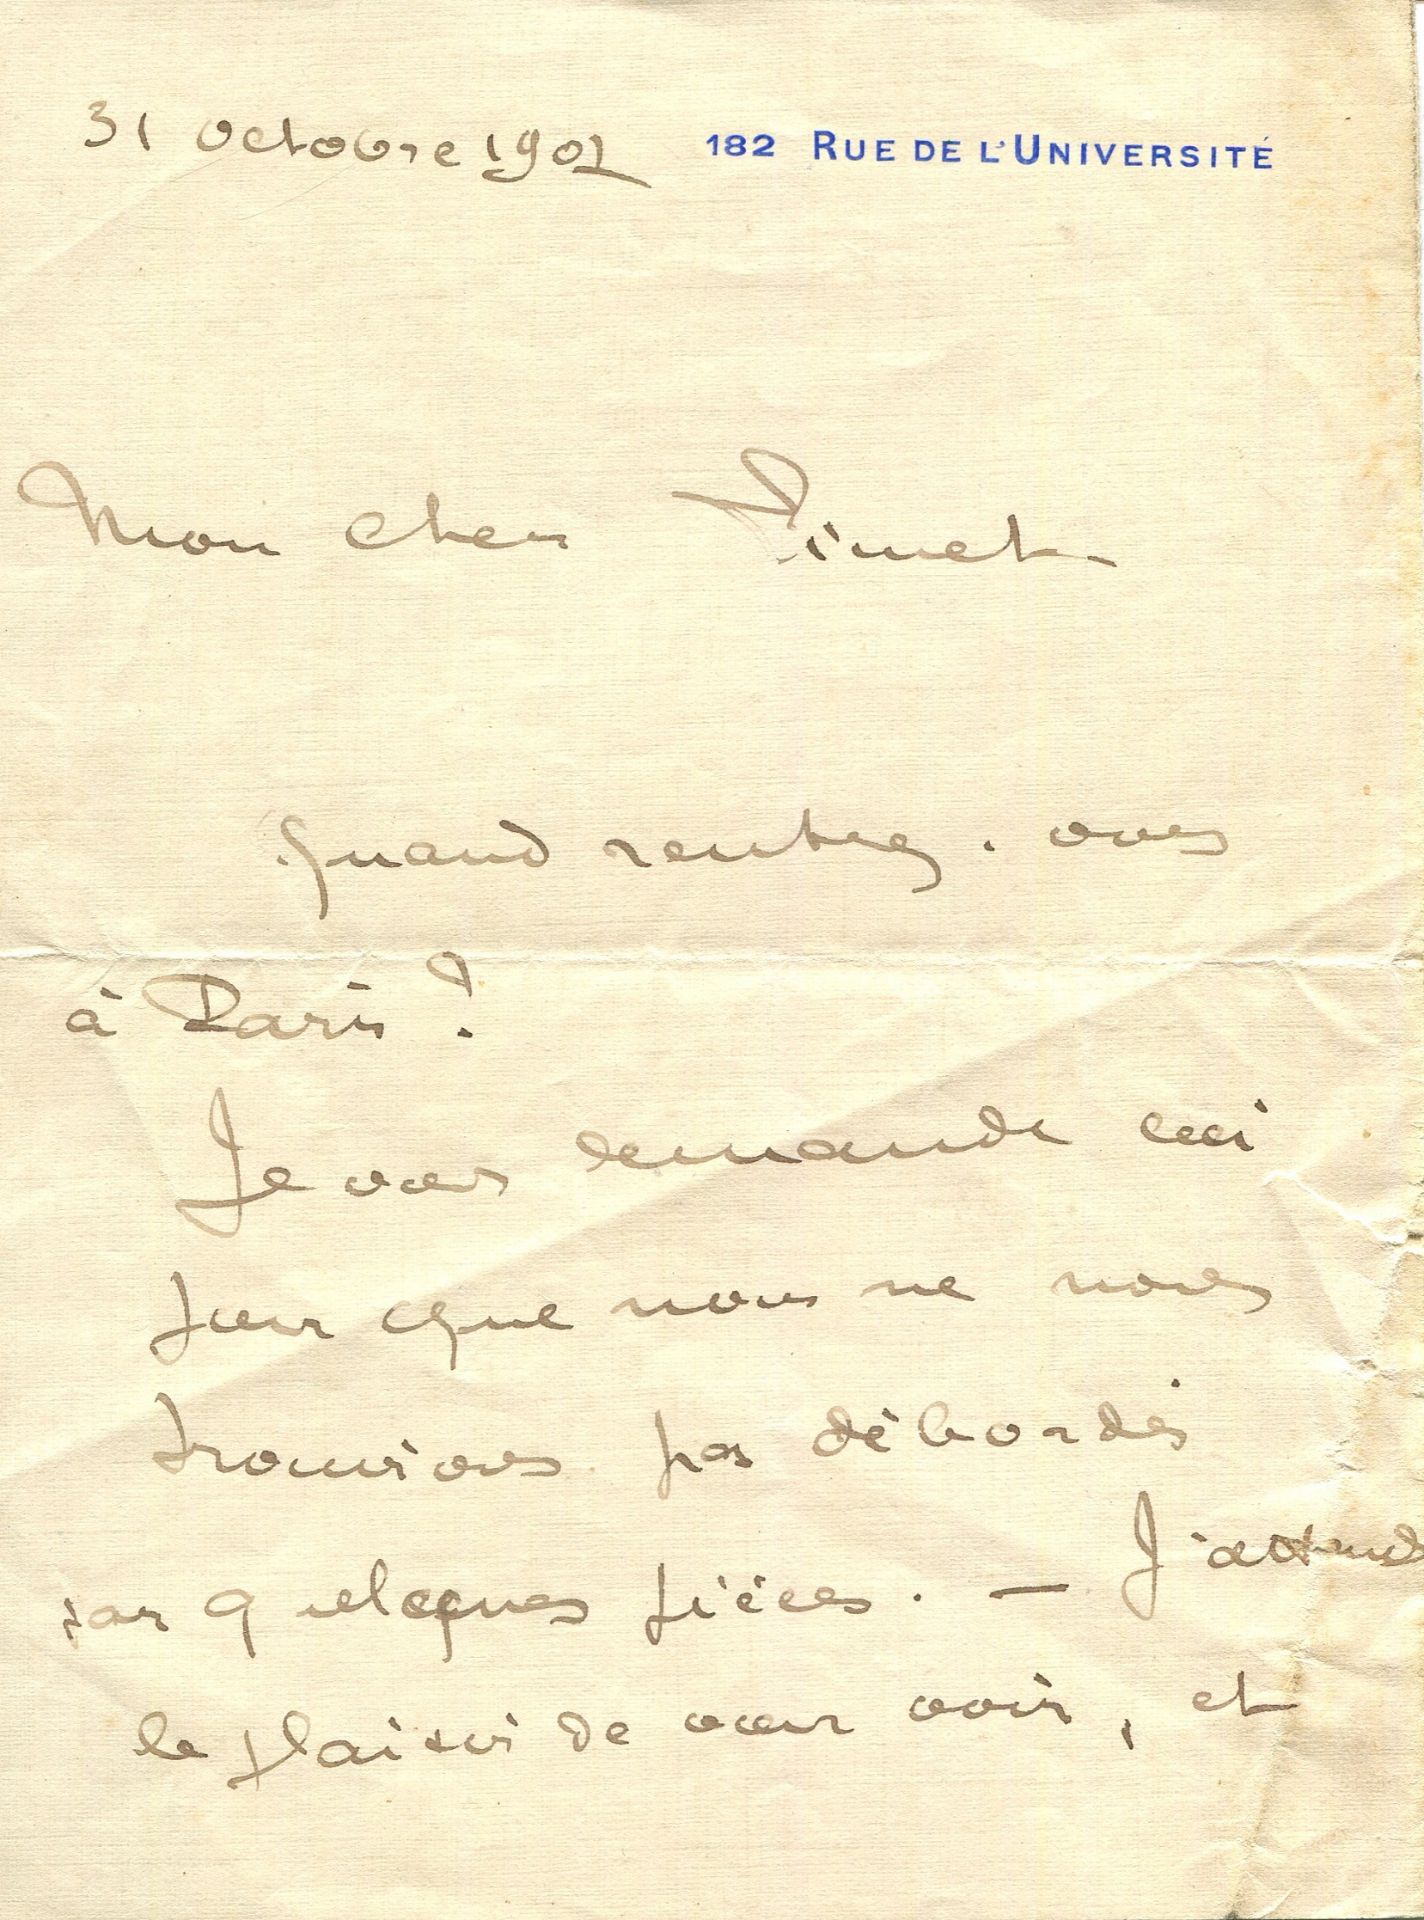 31 octobre 1902 182 RUE DE L'UNIVERSITÉ
Mon cher Pinet
quand rentrez-vous
à Paris?
Je vous demande ceci
pour que nous ne nous
trouvions pas débordés
par quelques pièces. — J'attends
le plaisir de vous voir, et